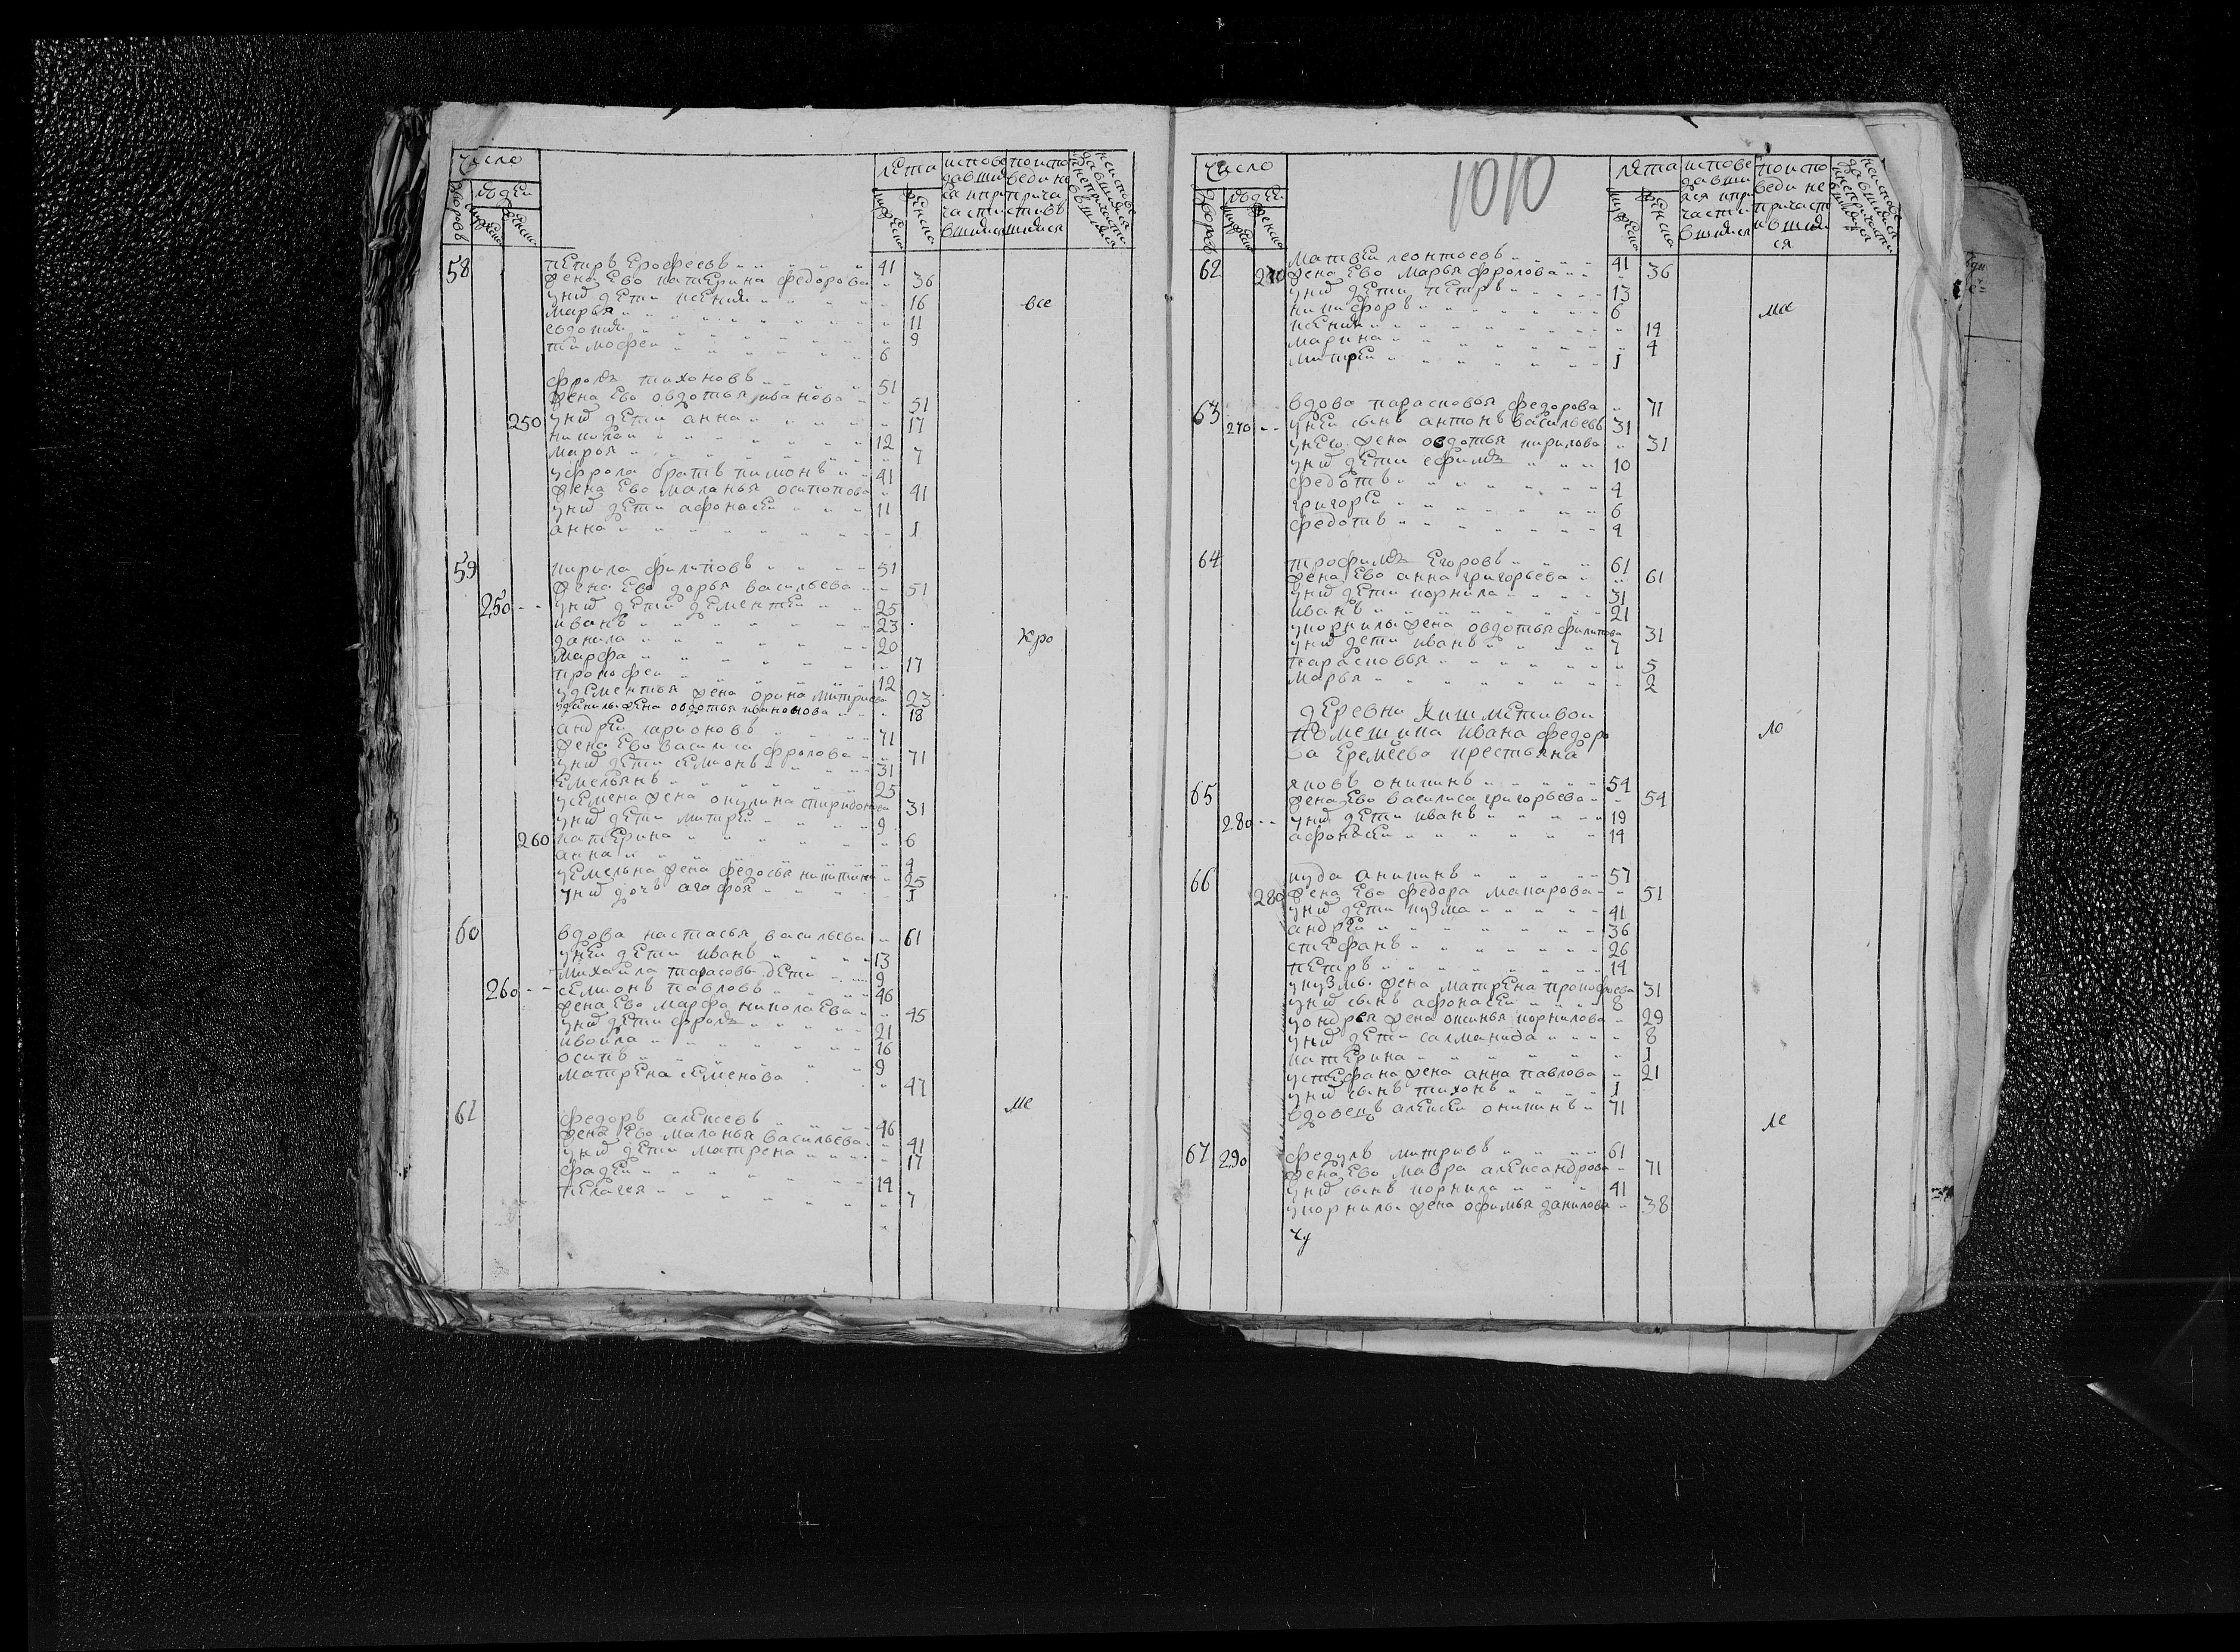 число
лета
исповедавшияся и причастившияся
по исповеди не причастившияся
дворовъ
людей
мужеска
женска
58 петръ ерофеевъ 41
жена ево катерина федорова 36
у них дети ксения 16
марья 11
евдокия 9
тимофеи 6
все
фролъ тихоновъ 51
жена ево овдотья иванова 51
250 у них дети анна 17
николаи 12
марья 7
у фрола братъ пимонъ 41
жена ево маланья осипова 41
у них дети афонасеи 11
анна 1
59 кирила филиповъ 51
жена ево дарья васильева 51
250 у них дети дементеи 25
иванъ 23
данила 20
кро
марфа 17
прокофеи 12
у дементья жена орина митриева 23
у данилы жена овдотья иванова 18
андреи ларионовъ 71
жена ево василиса фролова 71
у них дети семионъ 31
емельянъ 25
у семена жена окулина спиридонова 31
у них дети митреи 9
260 катерина 6
анна 4
у емельяна жена федосья никитина 25
у них дочь агафья 1
60 вдова настасья васильева 61
у неи дети иванъ 13
михаила тарасовы дети 9
260 семионъ павловъ 46
жена ево марфа николаева 45
у них дети фролъ 21
ивоила 16
осипъ 9
матрена семенова 47
ме
61 федоръ алексеевъ 46
жена ево маланья васильева 41
у них дети матрена 17
фадеи 14
пелагея 7
1010
число
лета
исповедавшияся и причастившияся
по исповеди не причастившияся
дворовъ
людей
мужеска
женска
62 матвеи леонтьевъ 41
270 жена ево марья фролова 36
у них дети петръ 13
никифоръ 6
же
ксения 14
марина 4
митреи 1
63 вдова парасковья федорова 71
270 у неи сынъ антонъ васильевъ 31
у нево жена овдотья кирилова 31
у них дети ефимъ 10
федотъ 4
григореи 6
федотъ 4
64 трофимъ егоровъ 61
жена ево анна григорьева 61
у них дети корнила 31
иванъ 21
у корнилы жена овдотья филипова 31
у них дети иванъ 7
парасковья 5
марья 2
деревни кишметивои
помещика ивана федоро
ва еремеева крестьяна
ло
65 яковъ оникинъ 54
жена ево василиса григорьева 54
280 у них дети иванъ 19
афонасеи 14
66 иуда аникинъ 57
280 жена ево федора макарова 51
у них дети кузма 41
андреи 36
стефанъ 26
петръ 14
у кузмы жена матрена прокофьева 31
у них сынъ афонасеи 8
у ондрея жена оксинья корнилова 29
у них дети салманида 8
катерина 1
у стефана жена анна павлова 21
у них сынъ тихонъ 1
вдовецъ алексеи оникинъ 71
ле
67 290 федулъ митривъ 61
жена ево мавра александрова 71
у них сынъ корнила 41
у корнилы жена офимья данилова 38